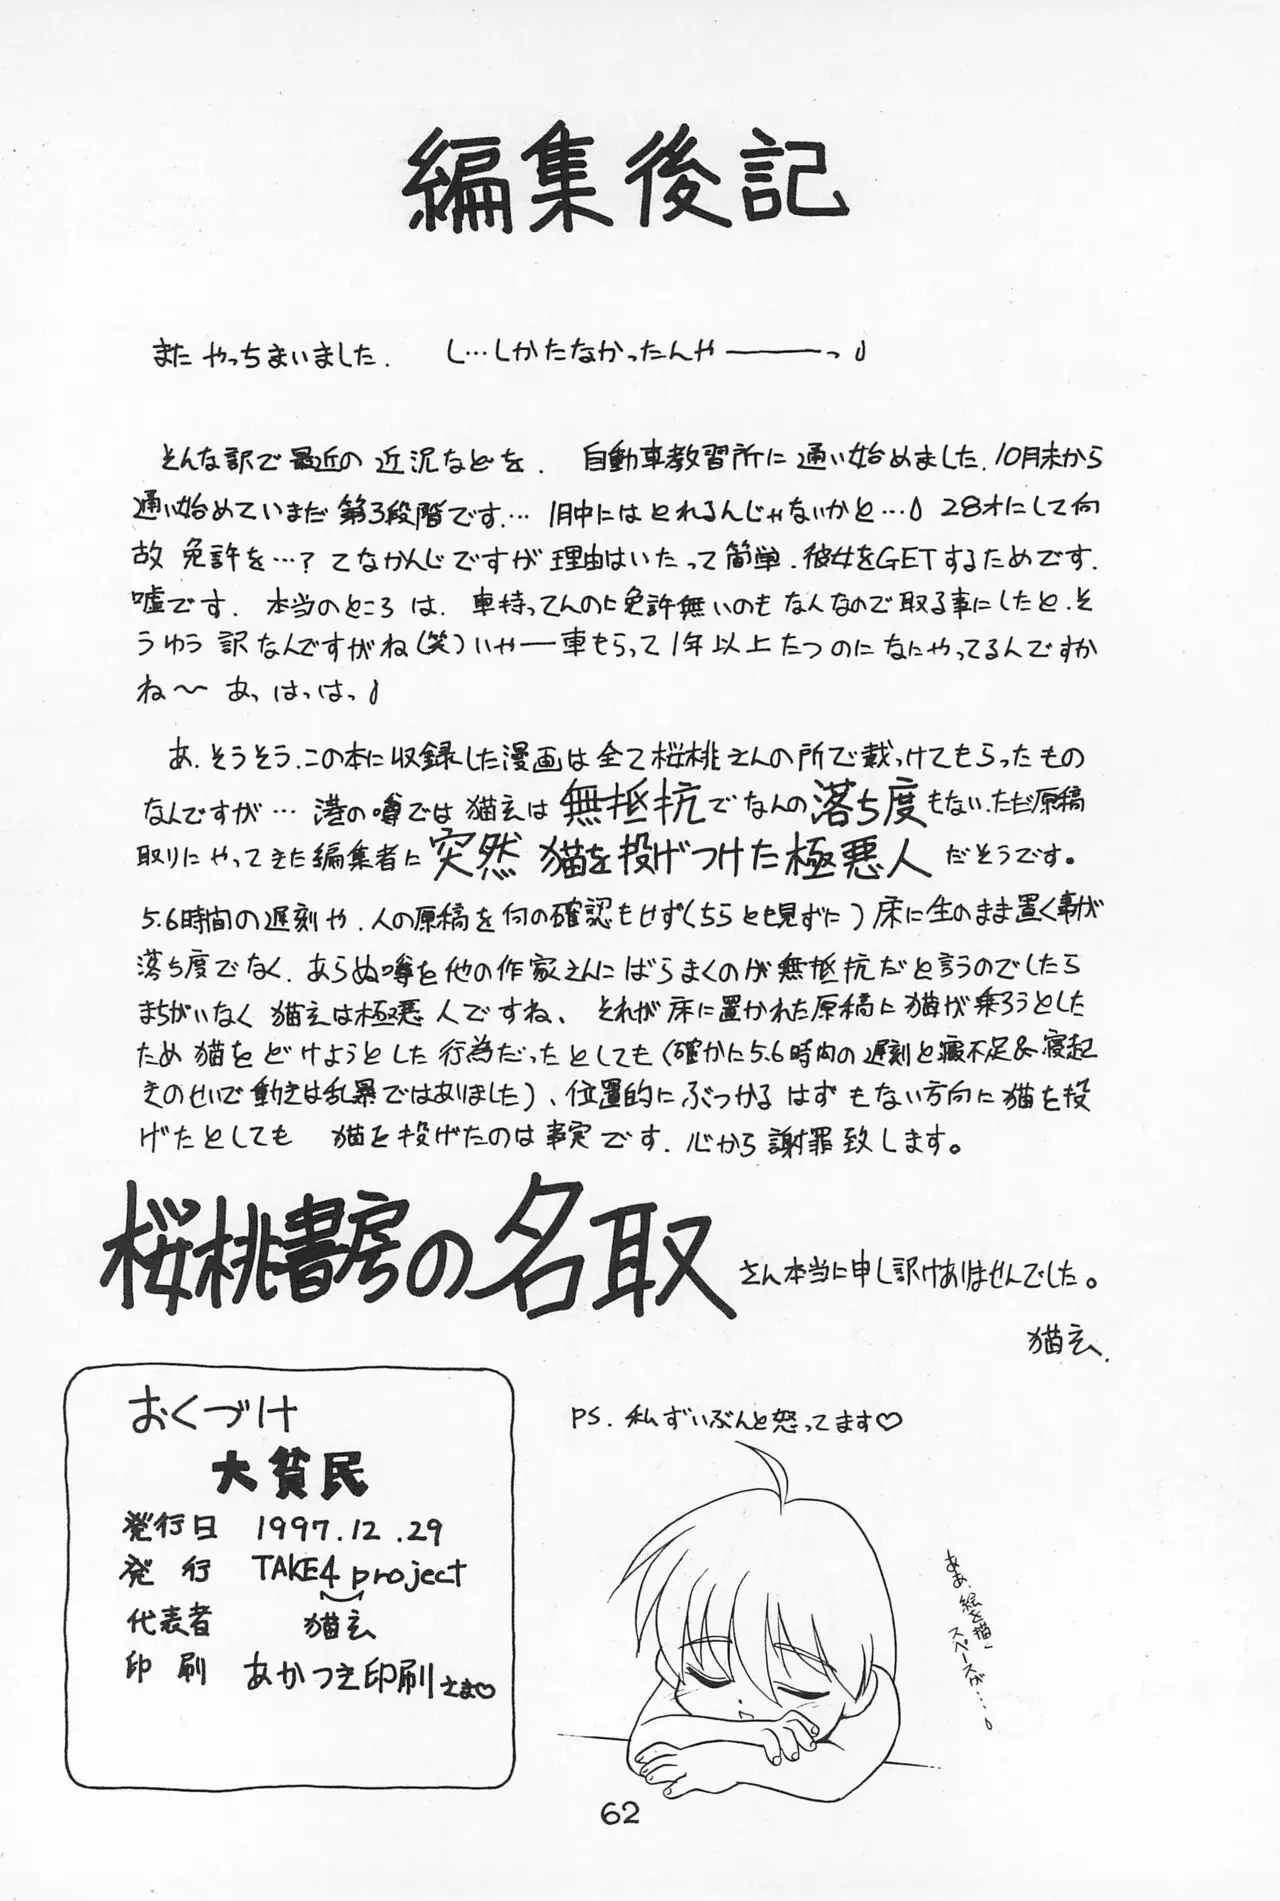 編集後記
またやっちまいました. し…しかたなかったんやーーーっ
そんな訳で最近の近況などを. 自動車教習所に通い始めました.10月末から
通い始めていまだ第3段階です.… 1月中にはとれるんじゃないかと… 28才にして何
故免許を…?てなかんじですが理由はいたって簡単.彼女をGETするためです.
嘘です. 本当のところは.車持ってんのに免許無いのもなんなので取る事にしたと.そ
うゆう訳なんですがね(笑)いやー車もらって1年以上たつのになにやってるんですか
ね〜 あっはっはっ
あ.そうそう.この本に収録した漫画は全て桜桃さんの所で載っけてもらったもの
なんですが… 港の噂では猫玄は無抵抗でなんの落ち度もない.ただ原稿
取りにやってきた編集者に突然猫を投げつけた極悪人だそうです。
5.6時間の遅刻や.人の原稿を何の確認もせず(ちらとも見ずに)床に生のまま置く事が
落ち度でなく.あらぬ噂を他の作家さんにばらまくのが無抵抗だと言うのでしたら
まちがいなく猫玄は極悪人ですね、それが床に置かれた原稿に猫が乗ろうとした
ため猫をどけようとした行為だったとしても(確かに5.6時間の遅刻と寝不足&寝起
きのせいで動きは乱暴ではありました)、位置的にぶつかるはずもない方向に猫を投
げたとしても 猫を投げたのは事実です.心から謝罪致します。
桜桃書房の名取さん本当に申し訳けありませんでした。
猫玄.
PS.私ずいぶんと怒ってます♡
おくづけ
大貧民
発行日 1997.12.29
発行 TAKE4project
代表者 猫玄
印刷 あかつき印刷さま♡
ああ.絵を描く
スペースが…
62